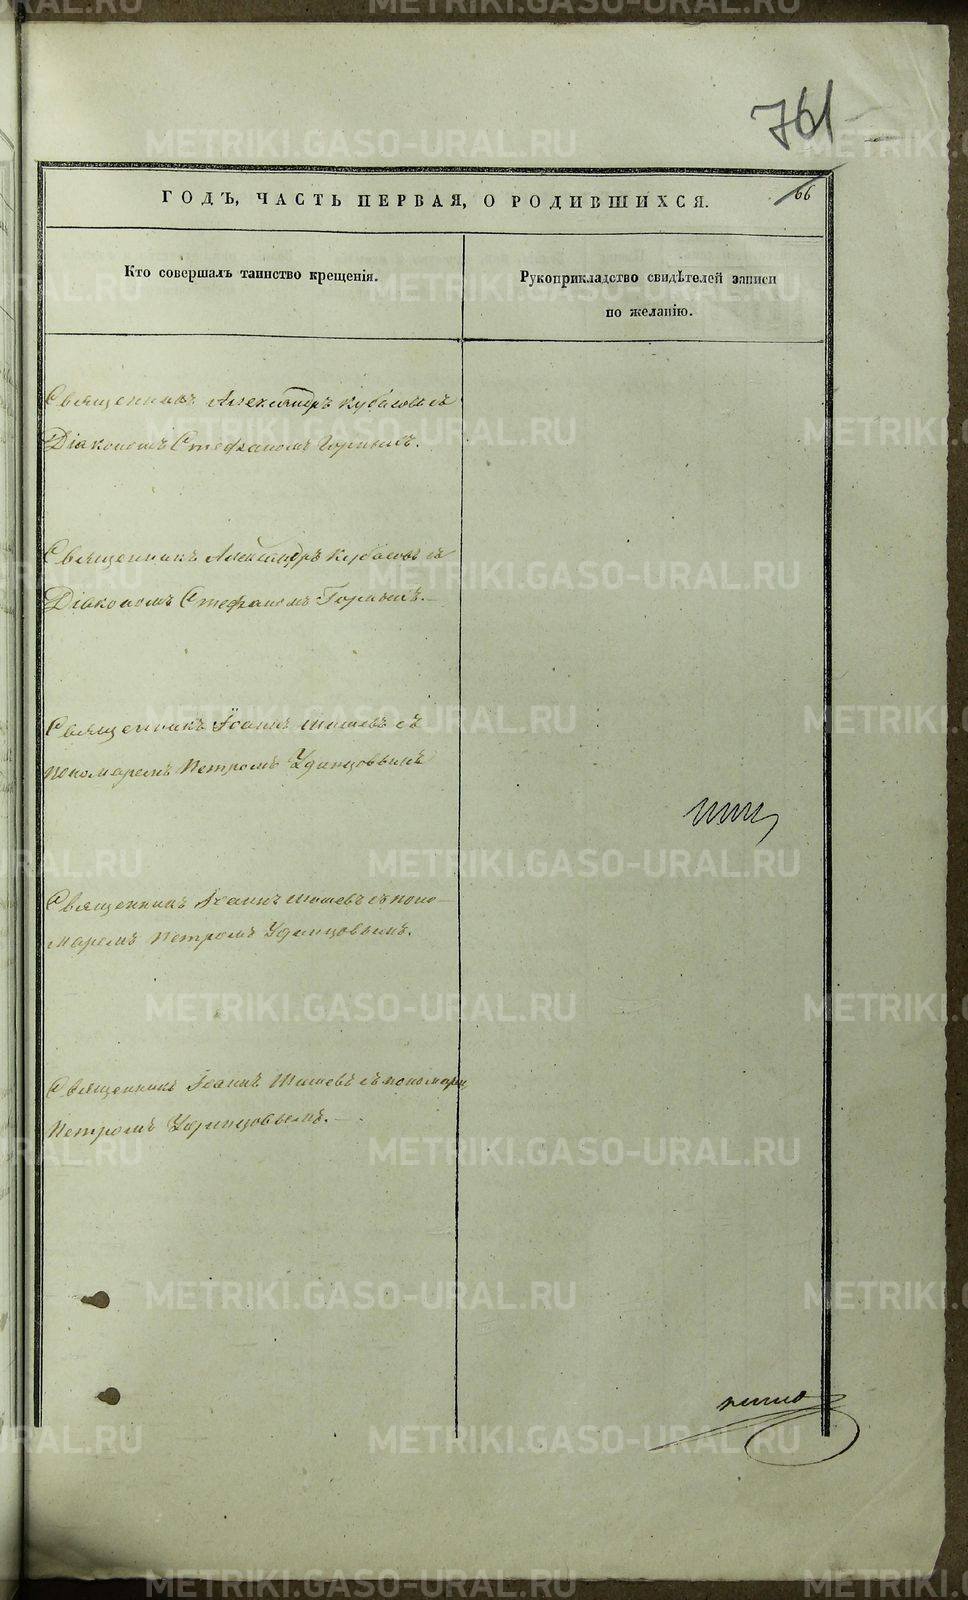 761
66
ГОДЪ, ЧАСТЬ ПЕРВАЯ, О РОДИВШИХСЯ.
Кто совершалъ таинство крещенія.
Рукоприкладство свидѣтелей записи
по желанію.
Священникъ Александръ Кубасовъ съ
Діакономъ Стефаномъ Горнымъ.
Священникъ Александръ Кубасовъ съ
Діакономъ Стефаномъ Горнымъ.
Священникъ Іоаннъ Шишевъ съ
пономаремъ Петромъ Удинцовымъ
Священникъ Іоаннъ Шишевъ съ поно-
маремъ Петромъ Удинцовымъ.
Священникъ Іоаннъ Шишевъ съ пономарем
Петромъ Удинцовымъ.
METRIKI.GASO-URAL.RU